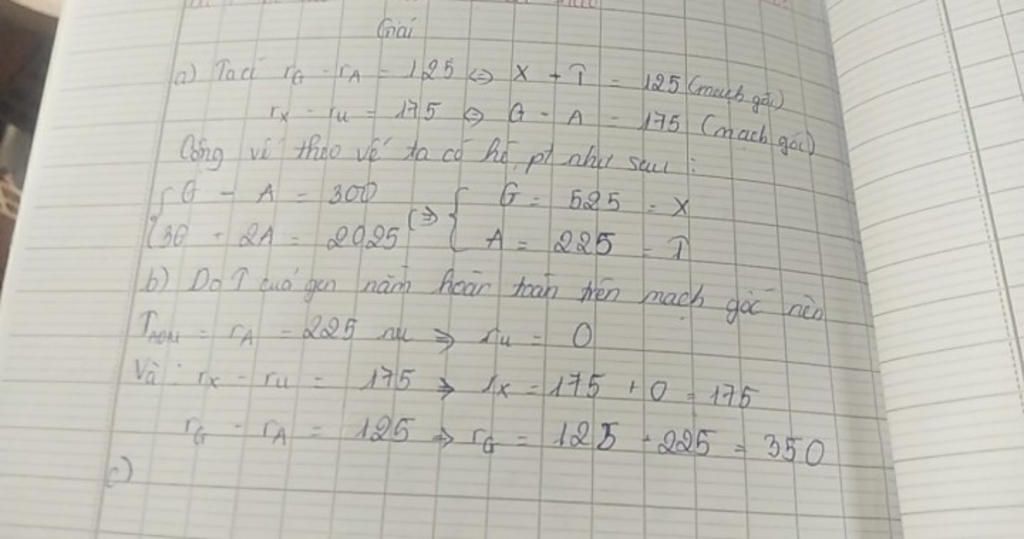 Giải
a) Ta có rG - rA = 125 ⇔ X - T = 125 (mạch gốc)
rX - rU = 175 ⇔ G - A = 175 (mạch gốc)
Cộng vế theo vế ta có hệ pt như sau:
{ G - A = 300 ⇔ { G = 525 = X
{ 3G + 2A = 2025 { A = 225 = T
b) Do T của gen nằm hoàn toàn trên mạch gốc nên
= rA = 225 nu ⇒ rU = 0
Và: rX - rU = 175 ⇒ rX = 175 + 0 = 175
rG - rA = 125 ⇒ rG = 125 + 225 = 350
c)